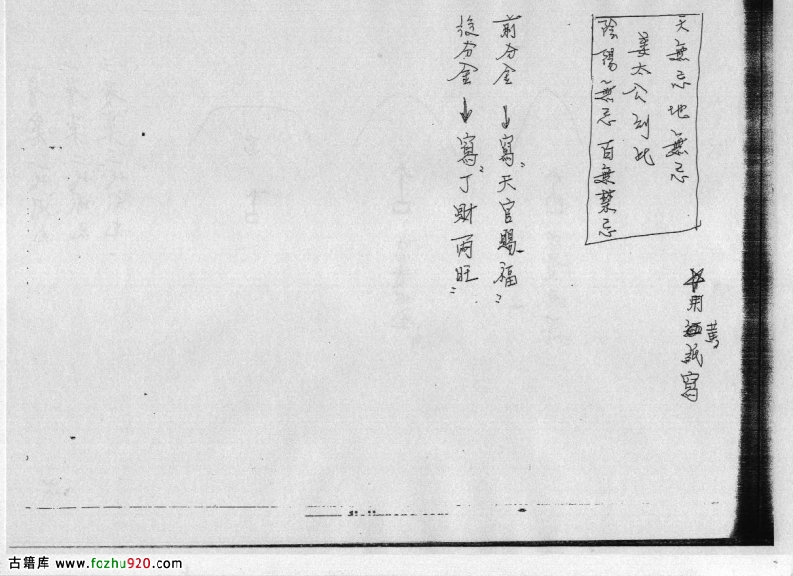 天無忌地無忌
姜太公到此
陰陽無忌百無禁忌
用黃紙寫
前分金→寫"天官賜福"
後分金→寫"丁財兩旺"
古籍库 www.fozhu920.com